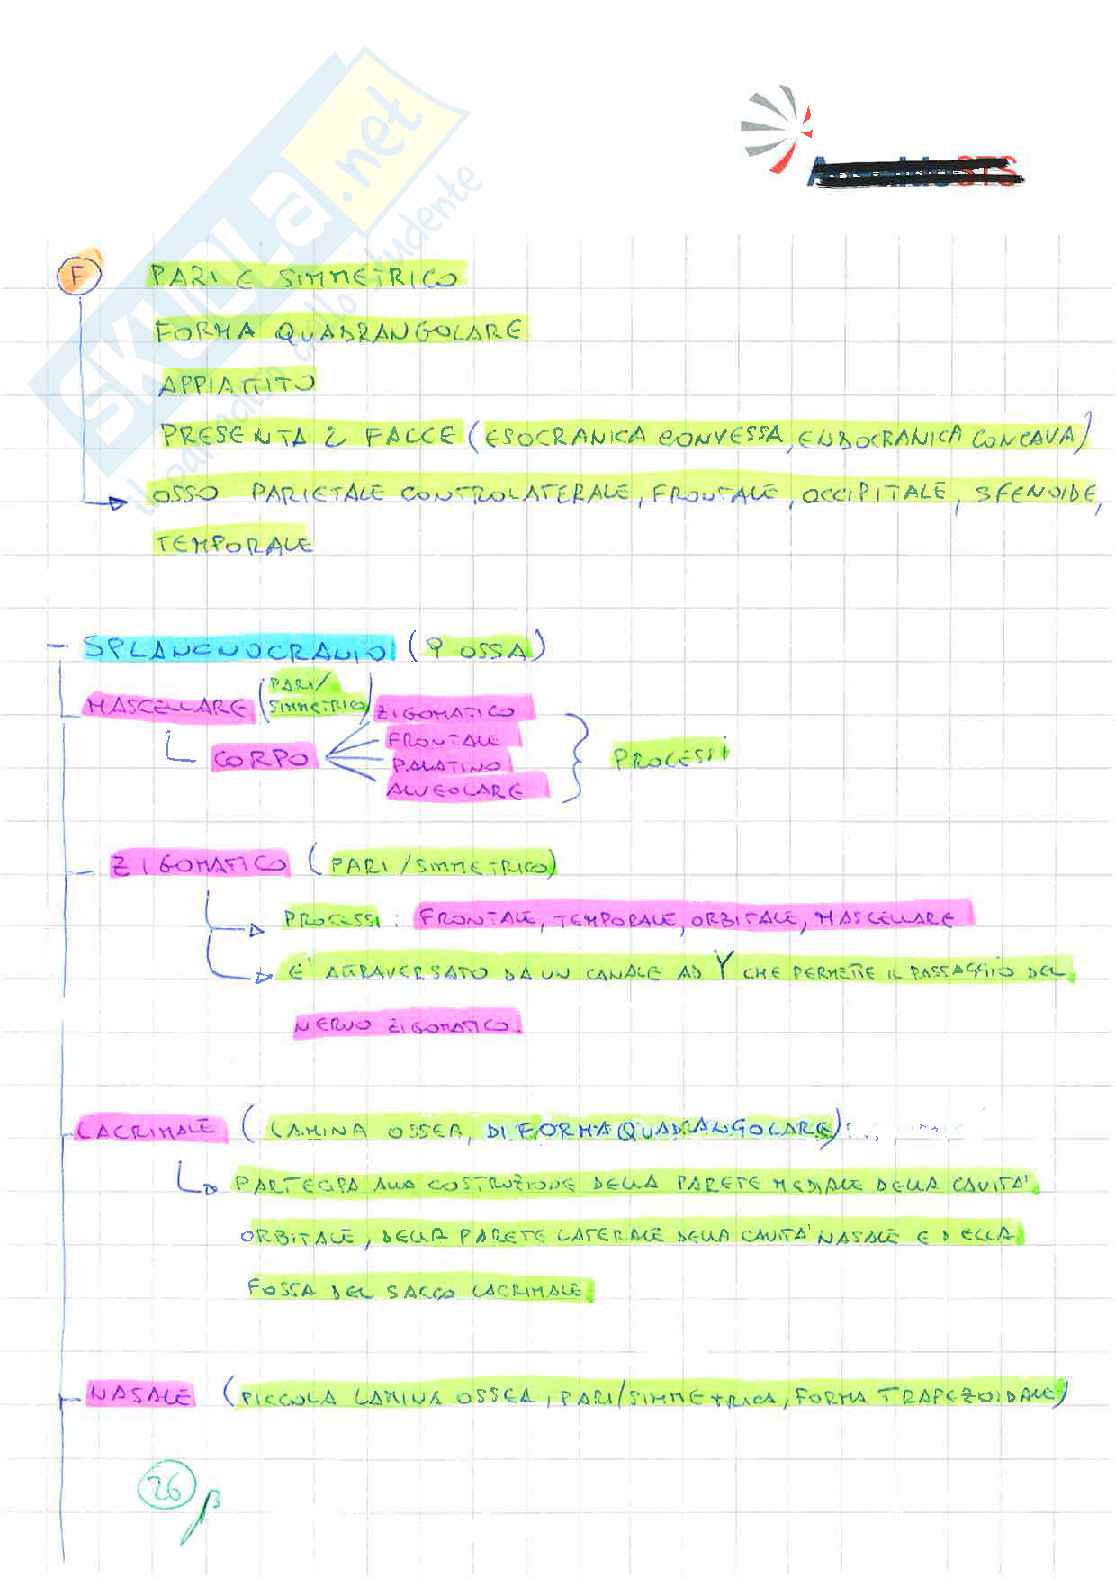 SKUOLA.net
F PARI E SIMMETRICO
FORMA QUADRANGOLARE
APPIATTITO
PRESENTA 2 FACCE (ESOCRANICA CONVESSA, ENDOCRANICA CONCAVA)
OSSO PARIETALE CONTROLATERALE, FRONTALE, OCCIPITALE, SFENOIDE,
TEMPORALE
- SPLANCNOCRANIO (9 OSSA)
MASCELLARE (PARI/SIMMETRICO) ZIGOMATICO
FRONTALE
CORPO PALATINO PROCESSI
ALVEOLARE
- ZIGOMATICO (PARI/SIMMETRICO)
PROCESSI: FRONTALE, TEMPORALE, ORBITALE, MASCELLARE
E' ATTRAVERSATO DA UN CANALE AD Y CHE PERMETTE IL PASSAGGIO DEL
NERVO ZIGOMATICO.
LACRIMALE (LAMINA OSSEA, DI FORMA QUADRANGOLARE):
PARTECIPA ALLA COSTRUZIONE DELLA PARETE MEDIALE DELLA CAVITA'
ORBITALE, DELLA PARETE LATERALE DELLA CAVITA' NASALE E DELLA
FOSSA DEL SACCO LACRIMALE.
- NASALE (PICCOLA LAMINA OSSEA, PARI/SIMMETRICA, FORMA TRAPEZOIDALE)
26/β